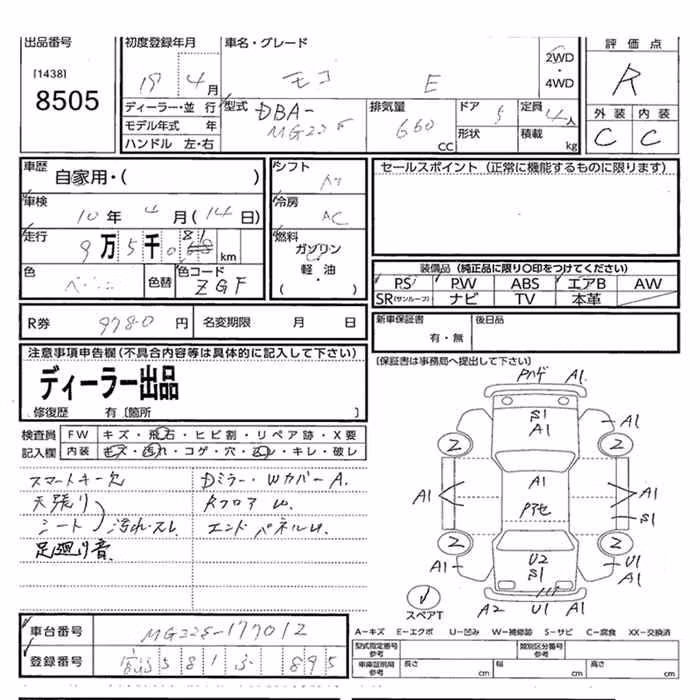 出品番号
[1438]
8505
初度登録年月
19 4月
車名・グレード
モコ E
2WD
・
4WD
評価点
R
外装 内装
C C
ディーラー・並行
モデル年式 年
ハンドル 左・右
型式
DBA-
MG22S
排気量
660
CC
ドア
5
形状
定員
4人
積載
kg
車歴
自家用・( )
車検
10年 4月(14日)
走行
9万5千081km
色
色替
色コード
ZGF
シフト
AT
冷房
AC
燃料
ガソリン
軽油
( ・ )
セールスポイント (正常に機能するものに限ります)
装備品 (純正品に限り〇印をつけてください)
PS PW ABS エアB AW
SR(サンルーフ) ナビ TV 本革
R券 9780円 名変期限 月 日
新車保証書
有・無
後日品
(保証書は事務局へ提出して下さい)
注意事項申告欄(不具合内容等は具体的に記入して下さい)
ディーラー出品
修復歴 有〔箇所 〕
検査員
記入欄
FW キズ・飛石・ヒビ割・リペア跡・X要
内装 キズ・汚れ・コゲ・穴・スレ・キレ・破レ
スマートキー欠
天張り
シート 汚れ・スレ
足廻り音
Dミラー・Wカバー A.
RフロアU.
エンドパネルU.
Pハゲ A1
S1
A1
A1
2 2
A1
A1 A1
Pアセ
S1
2 2
A1
U2
S1
U1
A1
スペアT
A2 U1 A1
車台番号 MG22S-177012
登録番号 宮崎 581 ふ 895
A-キズ E-エクボ U-凹み W-補修跡 S-サビ C-腐食 XX-交換済
型式指定番号
参考
類別区分番号
参考
車庫証明用
参考
長さ cm 幅 cm 高さ cm